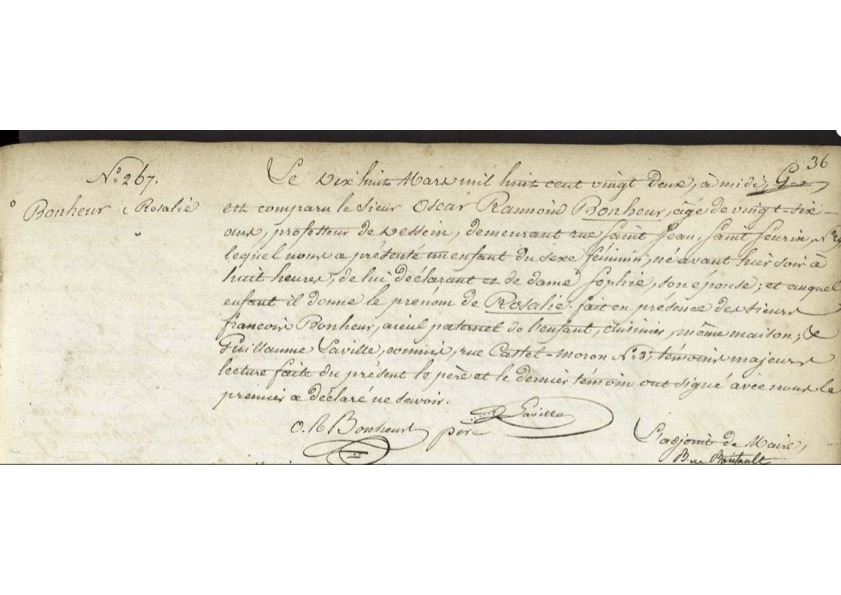 36
N° 267.
Bonheur Rosalie
Le Dix huit Mars mil huit cent vingt deux, à midi,
est comparu le sieur Oscar Raimond Bonheur, âgé de vingt-six
ans, professeur de Dessein, demeurant rue Saint Jean, Saint Seurin, N°
lequel nous a présenté un enfant du sexe féminin, né avant hier soir à
huit heures, de lui déclarant et de dame Sophie, son épouse; et auquel
enfant il donne le prénom de Rosalie. fait en présence des sieurs
francois Bonheur, aieul paternel de l'enfant, cuisinier, même maison, &
Guillaume Laville, commis, rue Castel-moron N° 3, témoins majeurs
lecture faite du présent le père et le dernier témoin ont signé avec nous le
premier a déclaré ne savoir.
O. R. Bonheur père
Laville
L'adjoint de Maire,